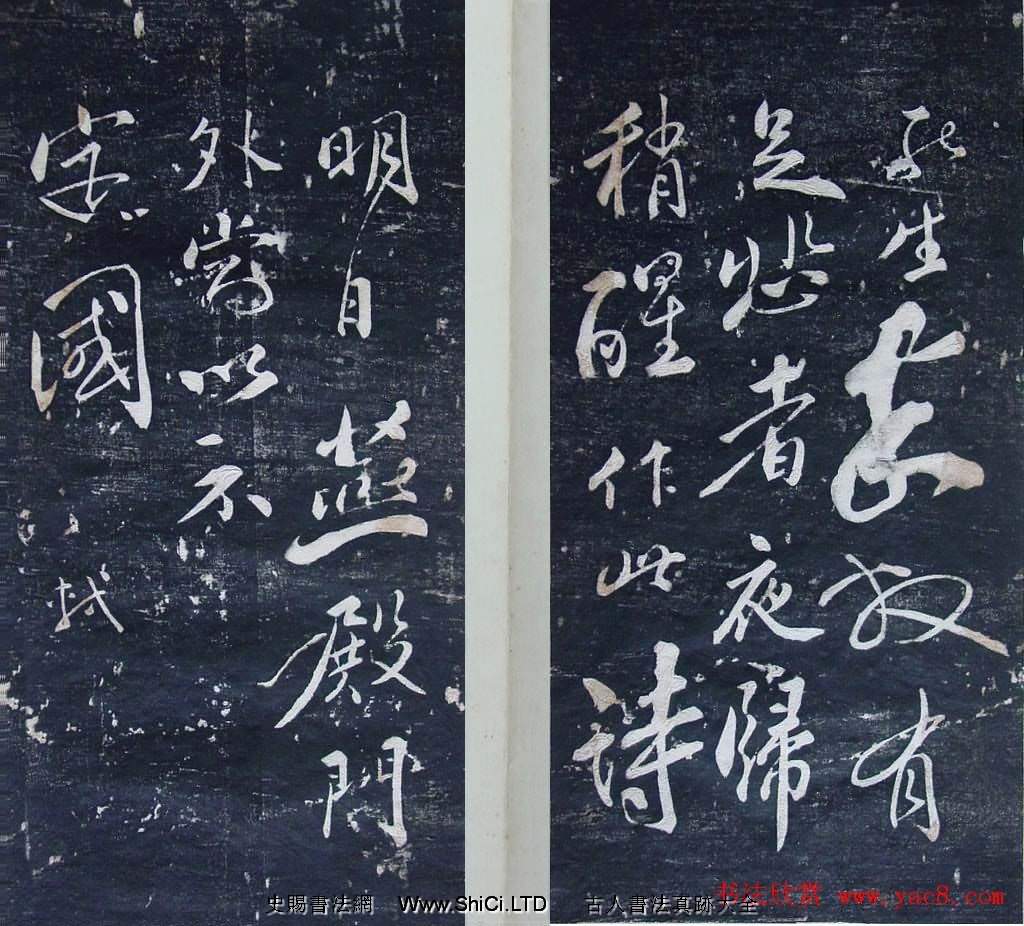 死生故有
足悲者夜歸
稍醒作此詩
明日燕殿門
外當以示
定國 軾
史賜書法網 Www.ShiCi.LTD 古人書法真跡大全
书法欣赏 www.yac8.com